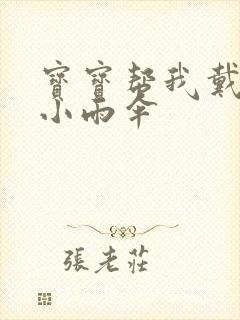 寶寶幫我戴
小雨傘
張老莊